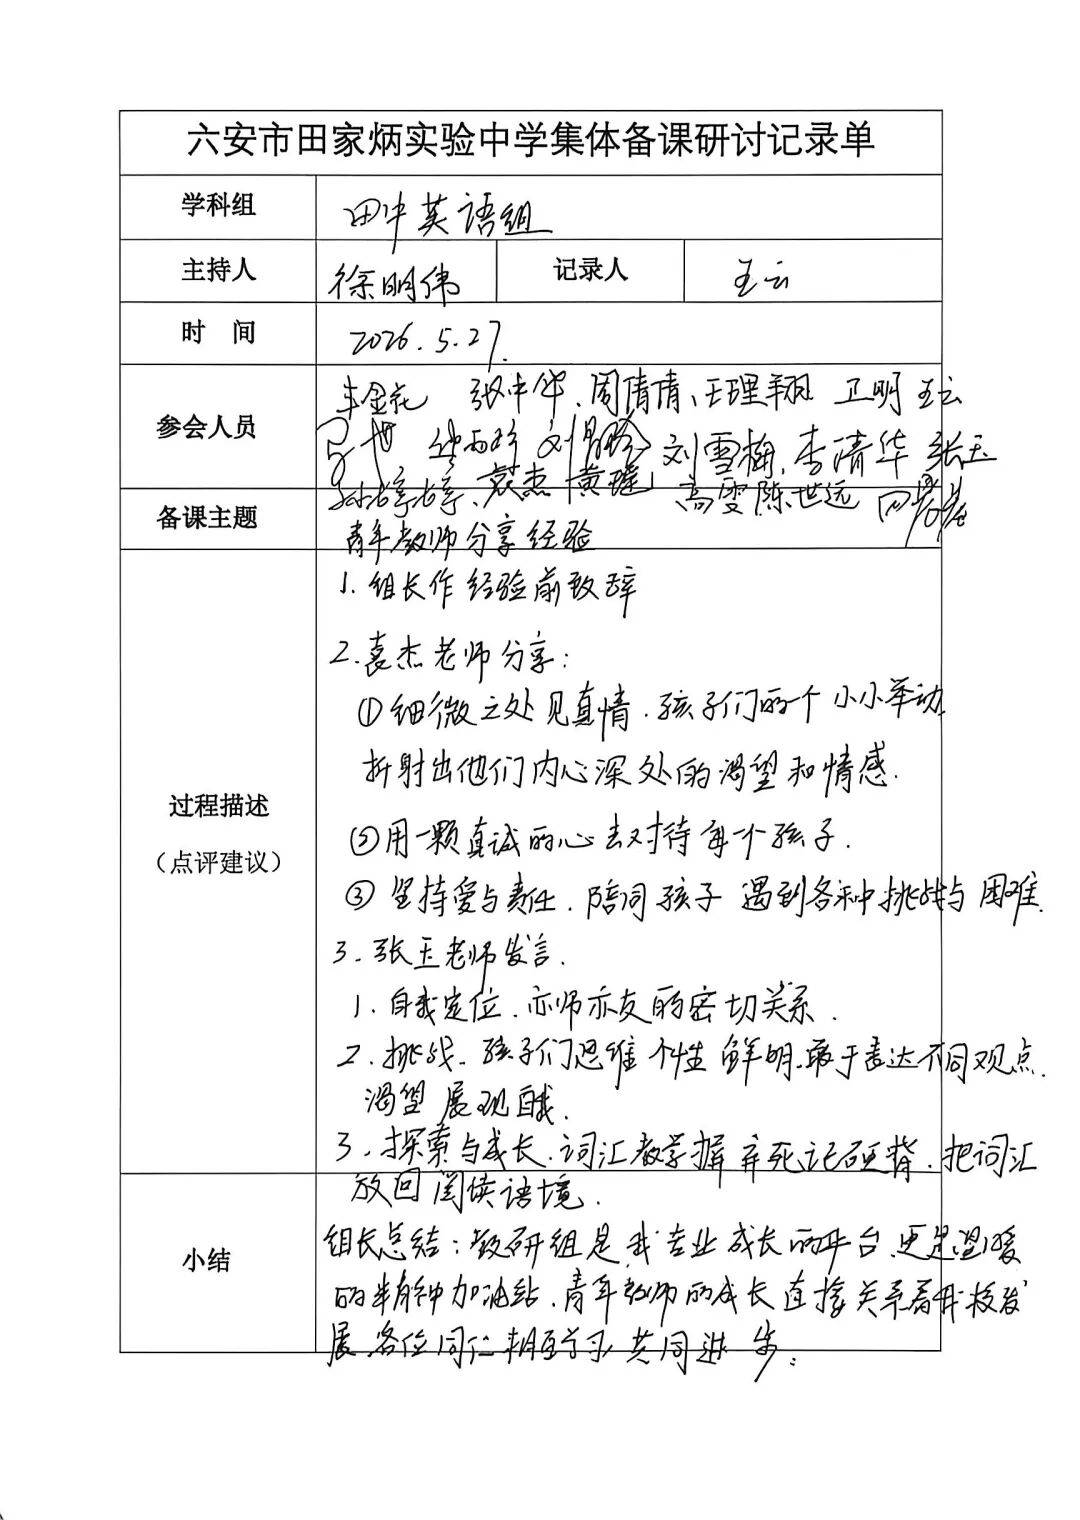 六安市田家炳实验中学集体备课研讨记录单
学科组 田中英语组
主持人 徐明伟 记录人 王云
时 间 2026.5.27.
参会人员
张中华、周倩倩、王理翔 卫明 王云
刘雪梅、李清华 张玉
孙婷婷、袁杰 黄瑾 高雯 陈世远
备课主题 青年教师分享经验
过程描述
（点评建议）
1. 组长作经验前致辞
2. 袁杰老师分享：
①细微之处见真情.孩子们的一个小小举动.
折射出他们内心深处的渴望和情感.
②用一颗真诚的心去对待每个孩子.
③ 坚持爱与责任.陪同孩子遇到各种挑战与困难.
3. 张玉老师发言.
1. 自我定位.亦师亦友的密切关系.
2. 挑战.孩子们思维个性鲜明.敢于表达不同观点.
渴望展现自我.
3. 探索与成长.词汇教学摒弃死记硬背.把词汇
放回阅读语境.
小结
组长总结：教研组是我专业成长的平台.更是温暖
的精神加油站.青年教师的成长直接关系着我校发
展.各位同仁相互学习共同进步；